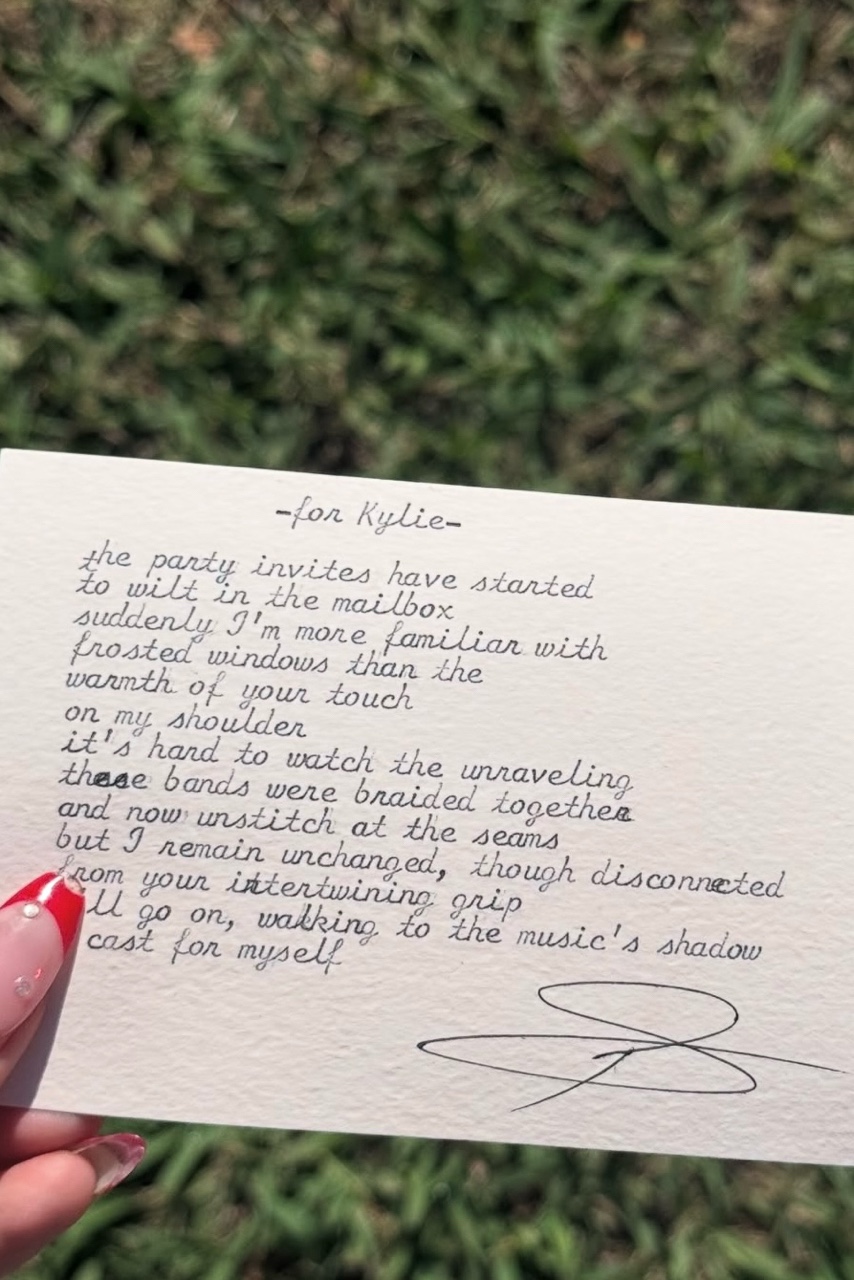 -for Kylie-
the party invites have started
to wilt in the mailbox
suddenly I'm more familiar with
frosted windows than the
warmth of your touch
on my shoulder
it's hard to watch the unraveling
these bands were braided together
and now unstitch at the seams
but I remain unchanged, though disconnected
from your intertwining grip
ll go on, walking to the music's shadow
cast for myself